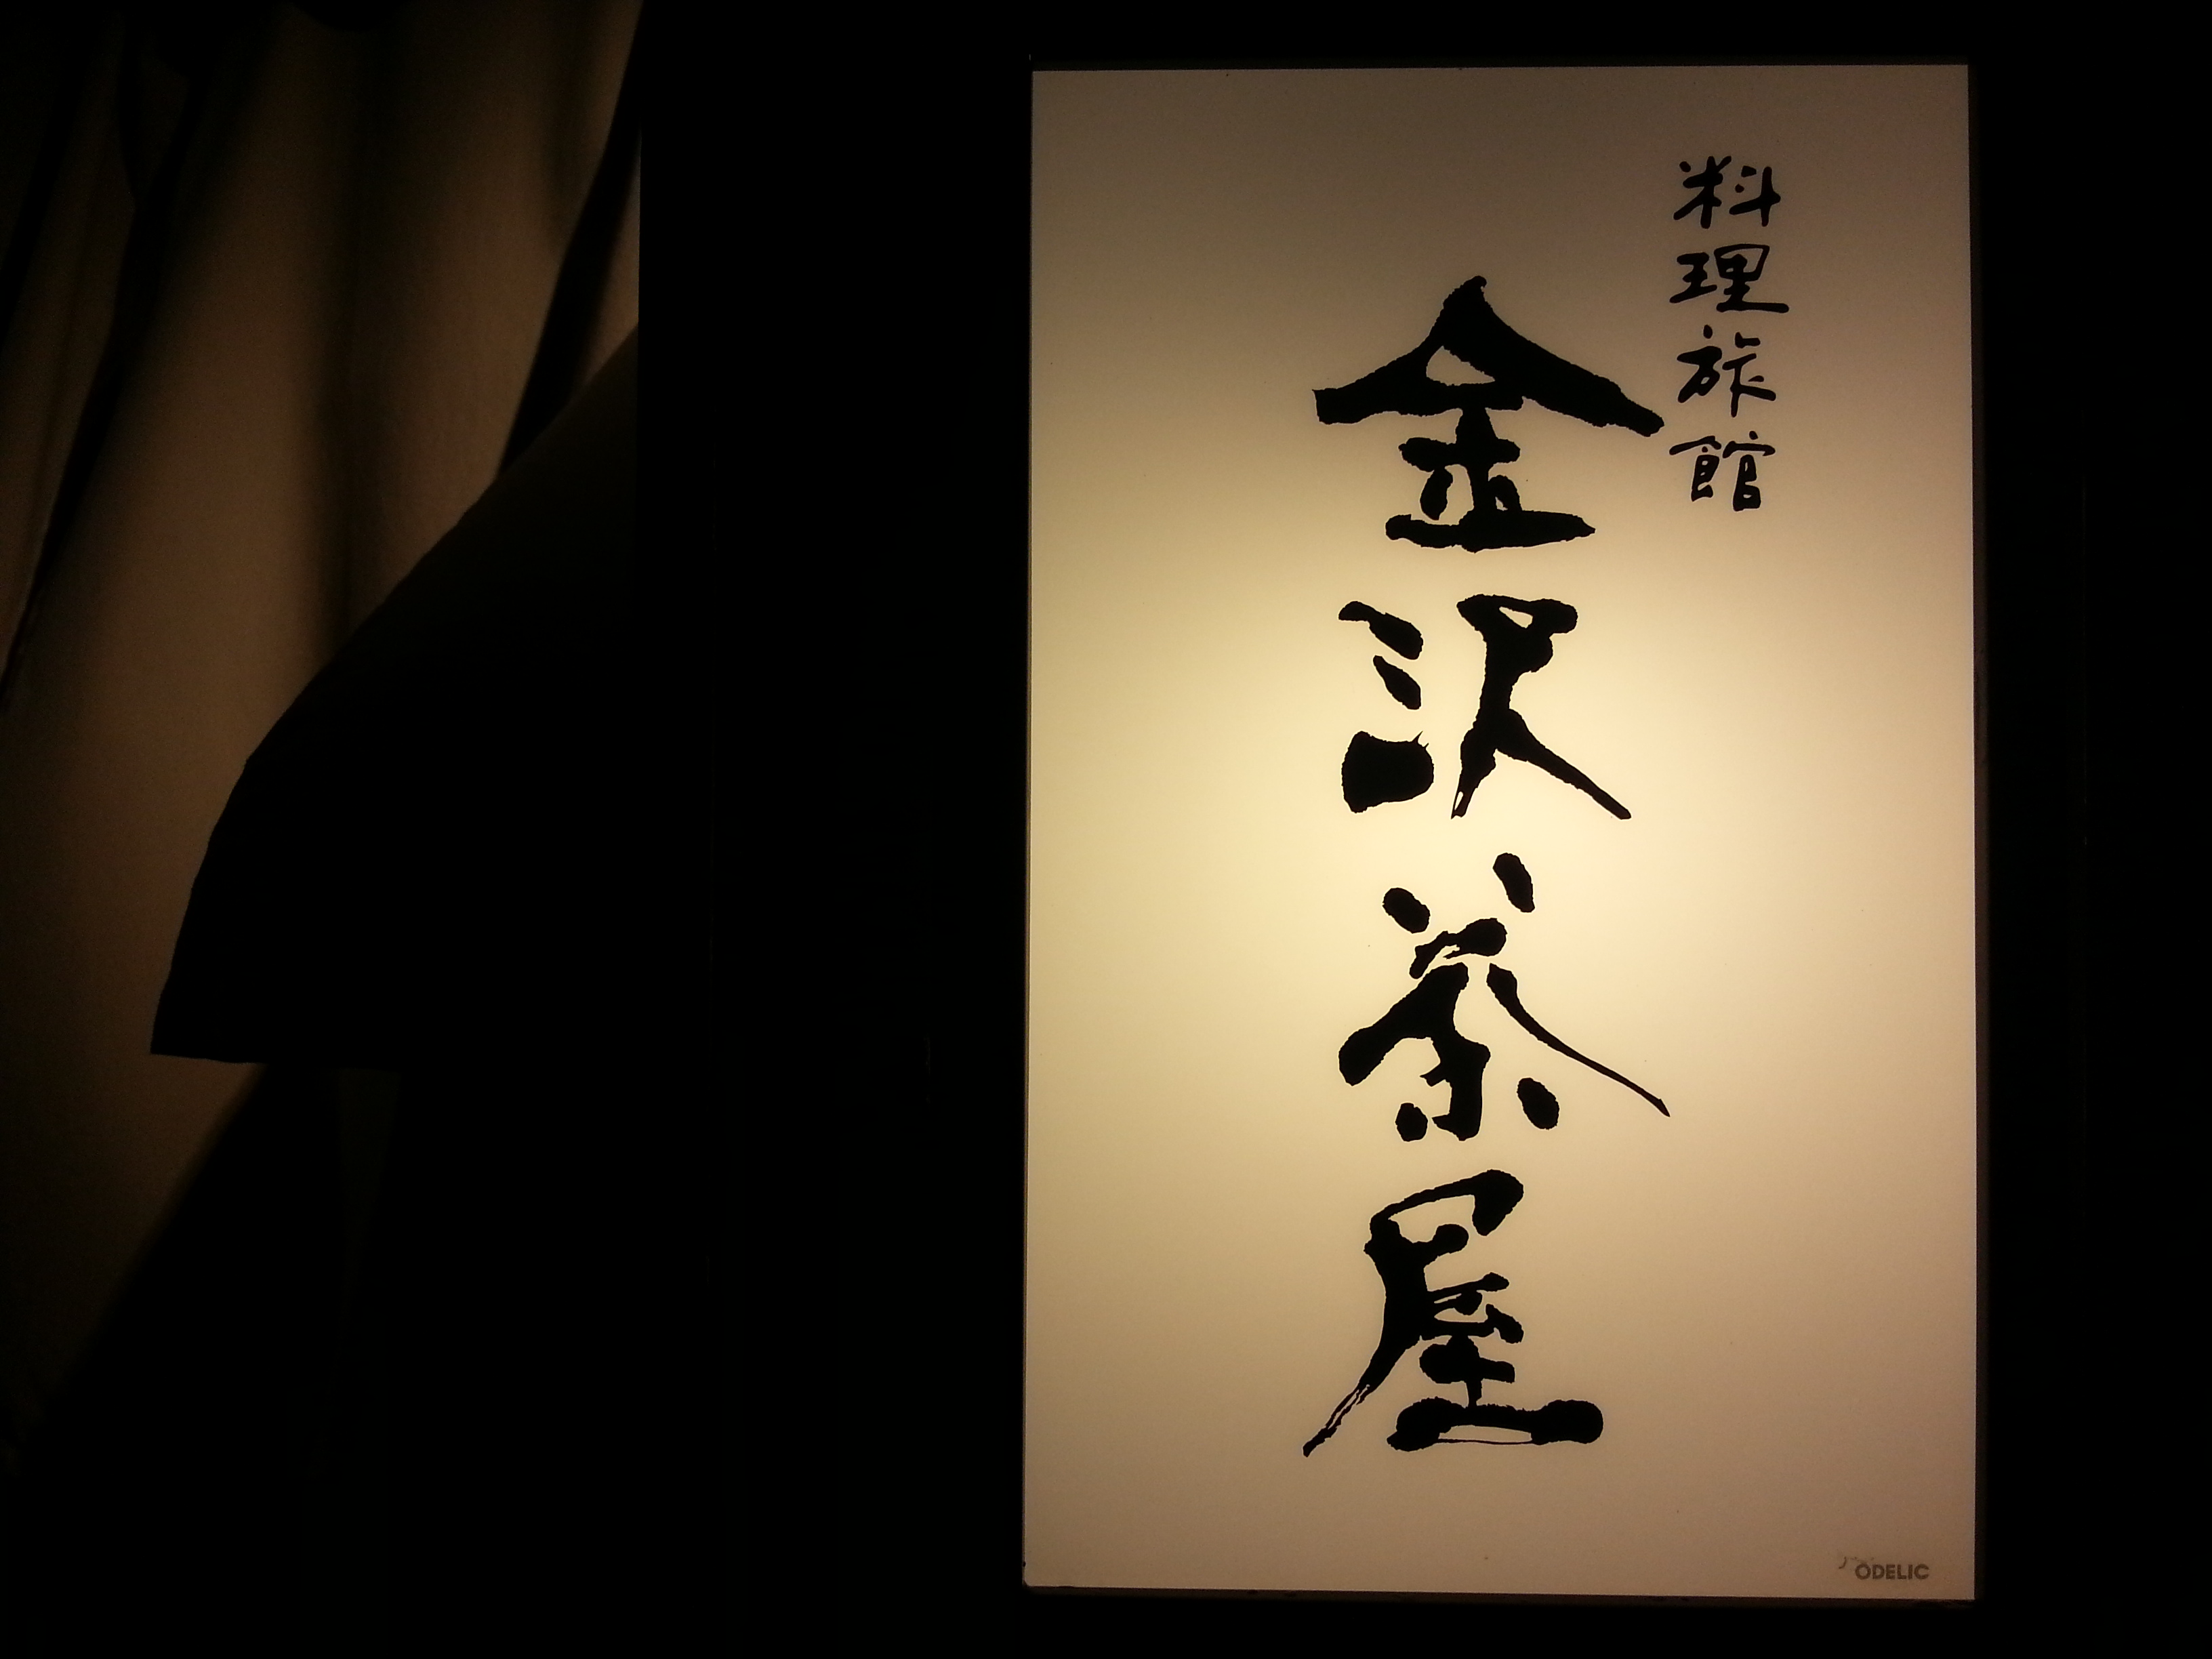 料理旅館
金沢茶屋
ODELIC